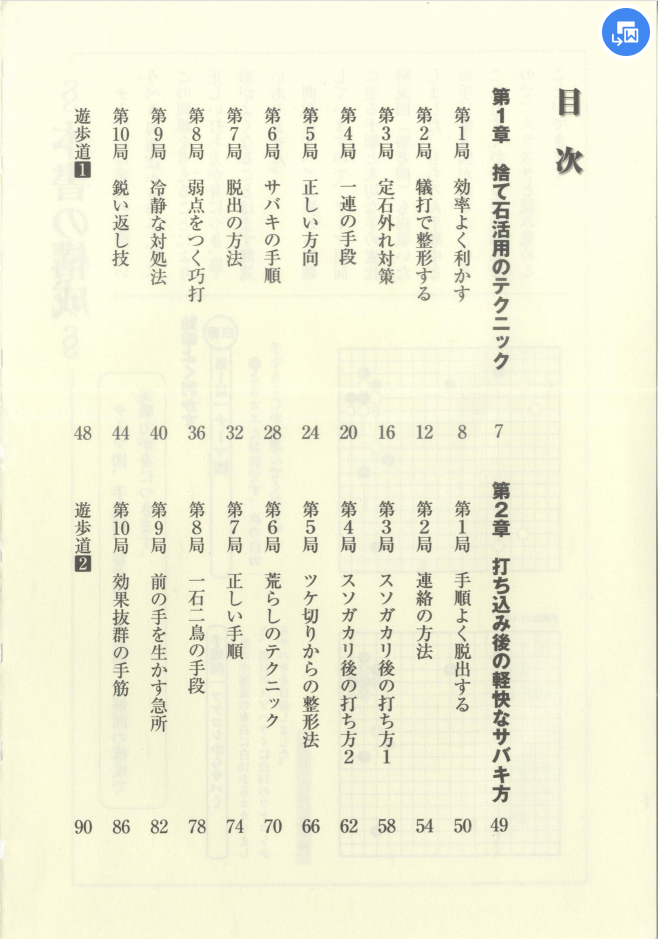 目次
第1章 捨て石活用のテクニック 7
第1局 効率よく利かす 8
第2局 犠打で整形する 12
第3局 定石外れ対策 16
第4局 一連の手段 20
第5局 正しい方向 24
第6局 サバキの手順 28
第7局 脱出の方法 32
第8局 弱点をつく巧打 36
第9局 冷静な対処法 40
第10局 鋭い返し技 44
遊歩道1 48
第2章 打ち込み後の軽快なサバキ方 49
第1局 手順よく脱出する 50
第2局 連絡の方法 54
第3局 スソガカリ後の打ち方1 58
第4局 スソガカリ後の打ち方2 62
第5局 ツケ切りからの整形法 66
第6局 荒らしのテクニック 70
第7局 正しい手順 74
第8局 一石二鳥の手段 78
第9局 前の手を生かす急所 82
第10局 効果抜群の手筋 86
遊歩道2 90